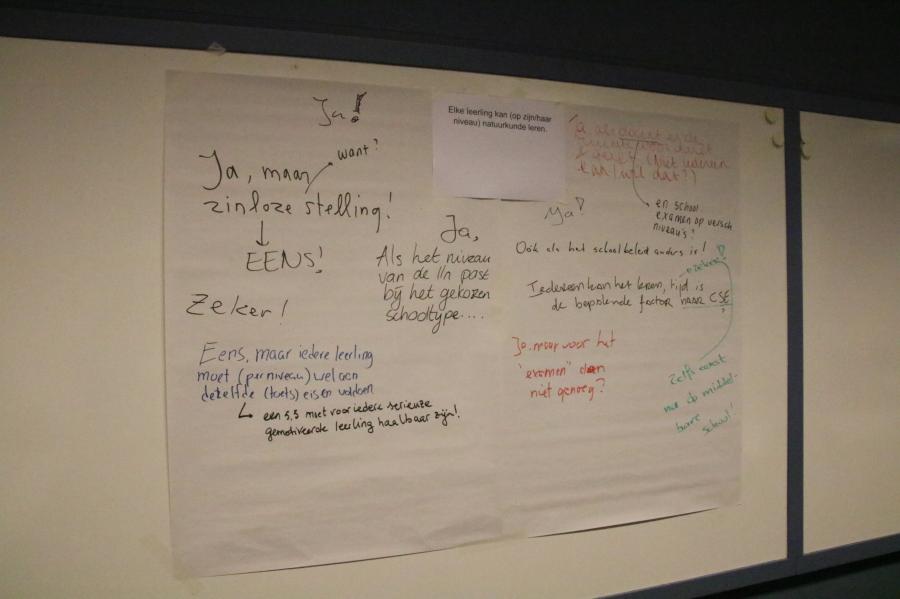 Elke leerling kan (op zijn/haar
niveau) natuurkunde leren.
Ja!
Ja, maar
want?
zinloze stelling!
EENS!
Zeker!
Ja,
Als het niveau
van de lln past
bij het gekozen
schooltype....
Eens, maar iedere leerling
moet (per niveau) wel aan
dezelfde (toets) eisen voldoen
een 5,5 moet voor iedere serieuze
gemotiveerde leerling haalbaar zijn!
(niet iedereen
kan/wil dat?)
en school
examen op versch
niveau's?
Ja!
Oók als het schoolbeleid anders is!
Iedereen kan het leren, tijd is
de bepalende factor naar CSE
Ja, maar voor het
"examen" dan
niet genoeg?
Zelfs eerst
na de middel-
bare
school!